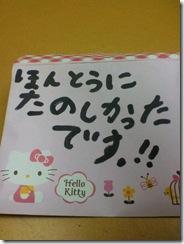 ほんとうに
たのしかった
です.!!
Hello
Kitty